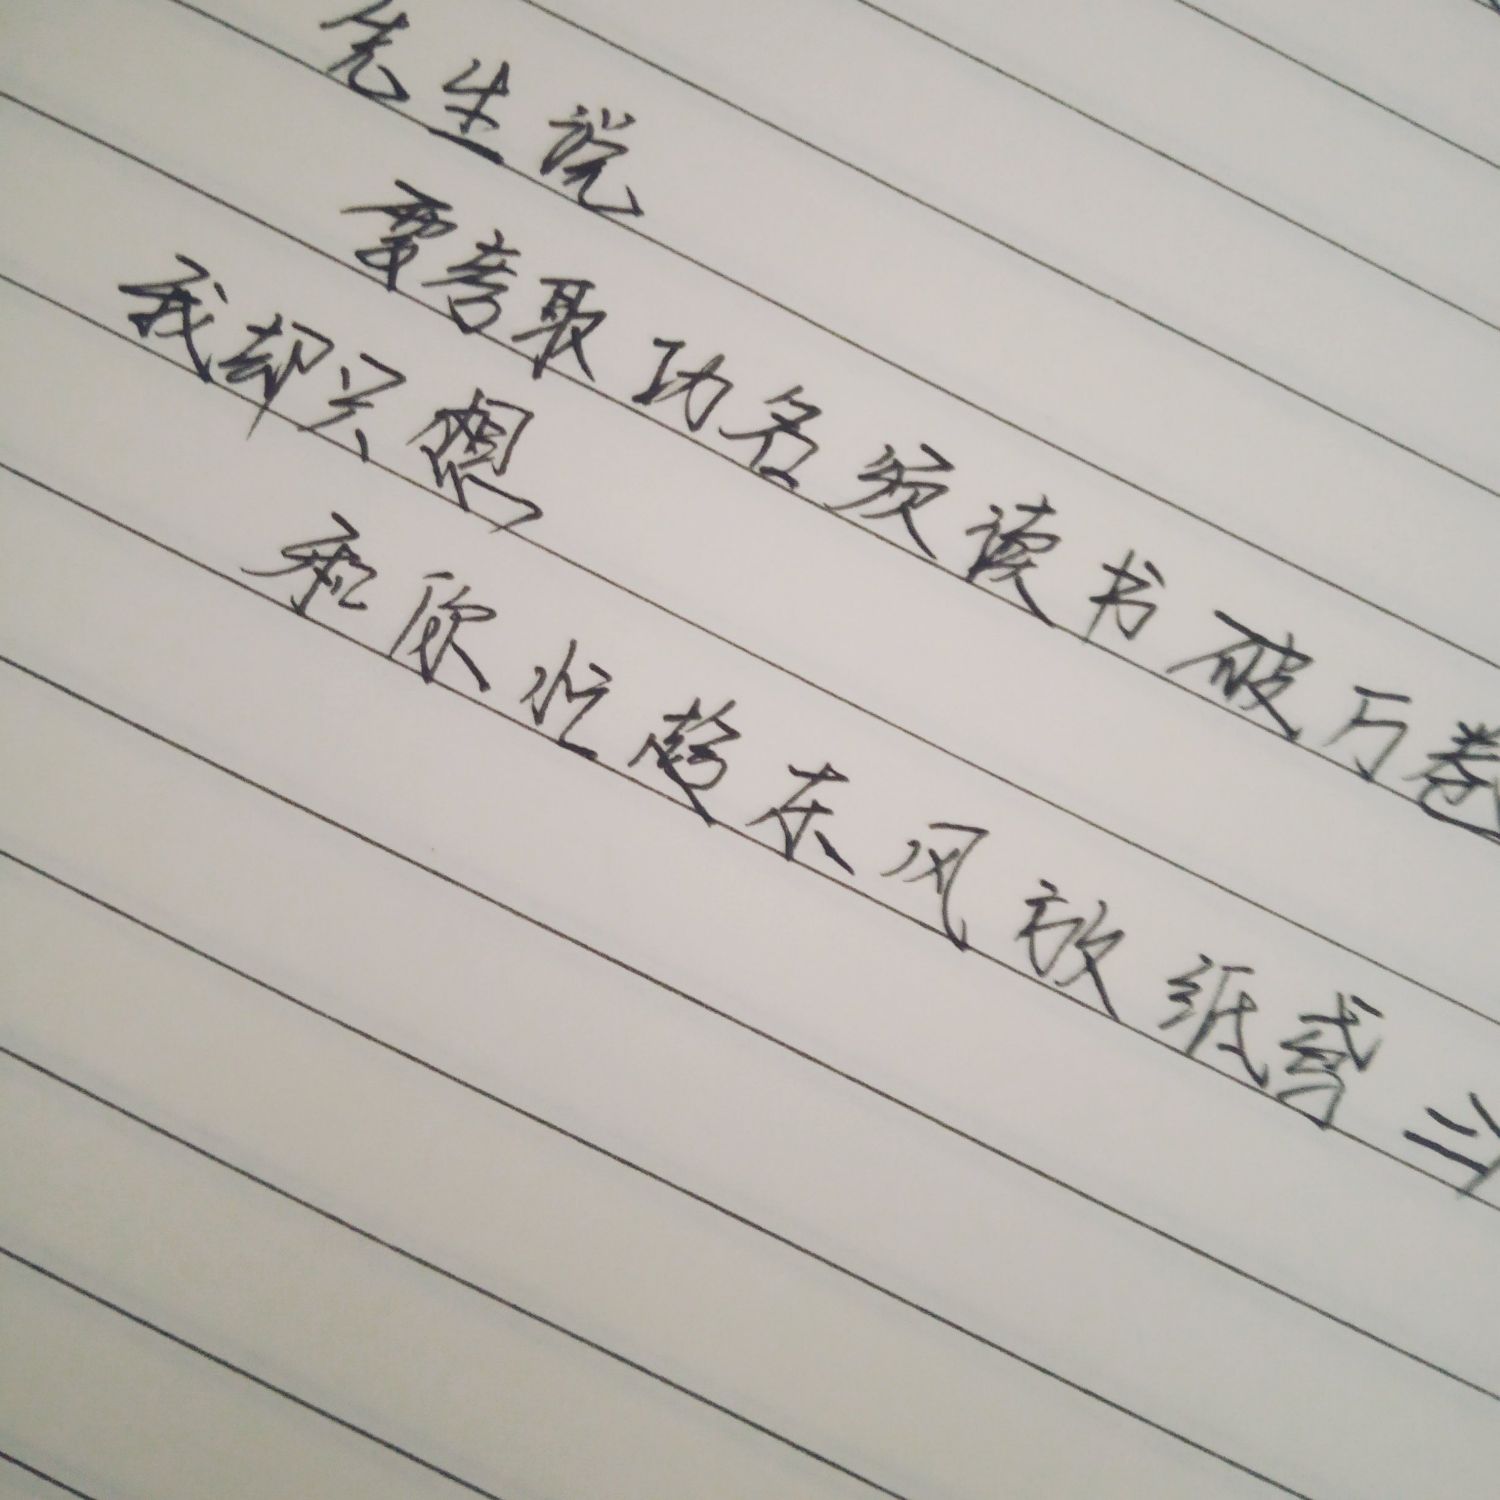 先生说
要考取功名须读书破万卷
我却只想
和欣趁东风放纸鸢